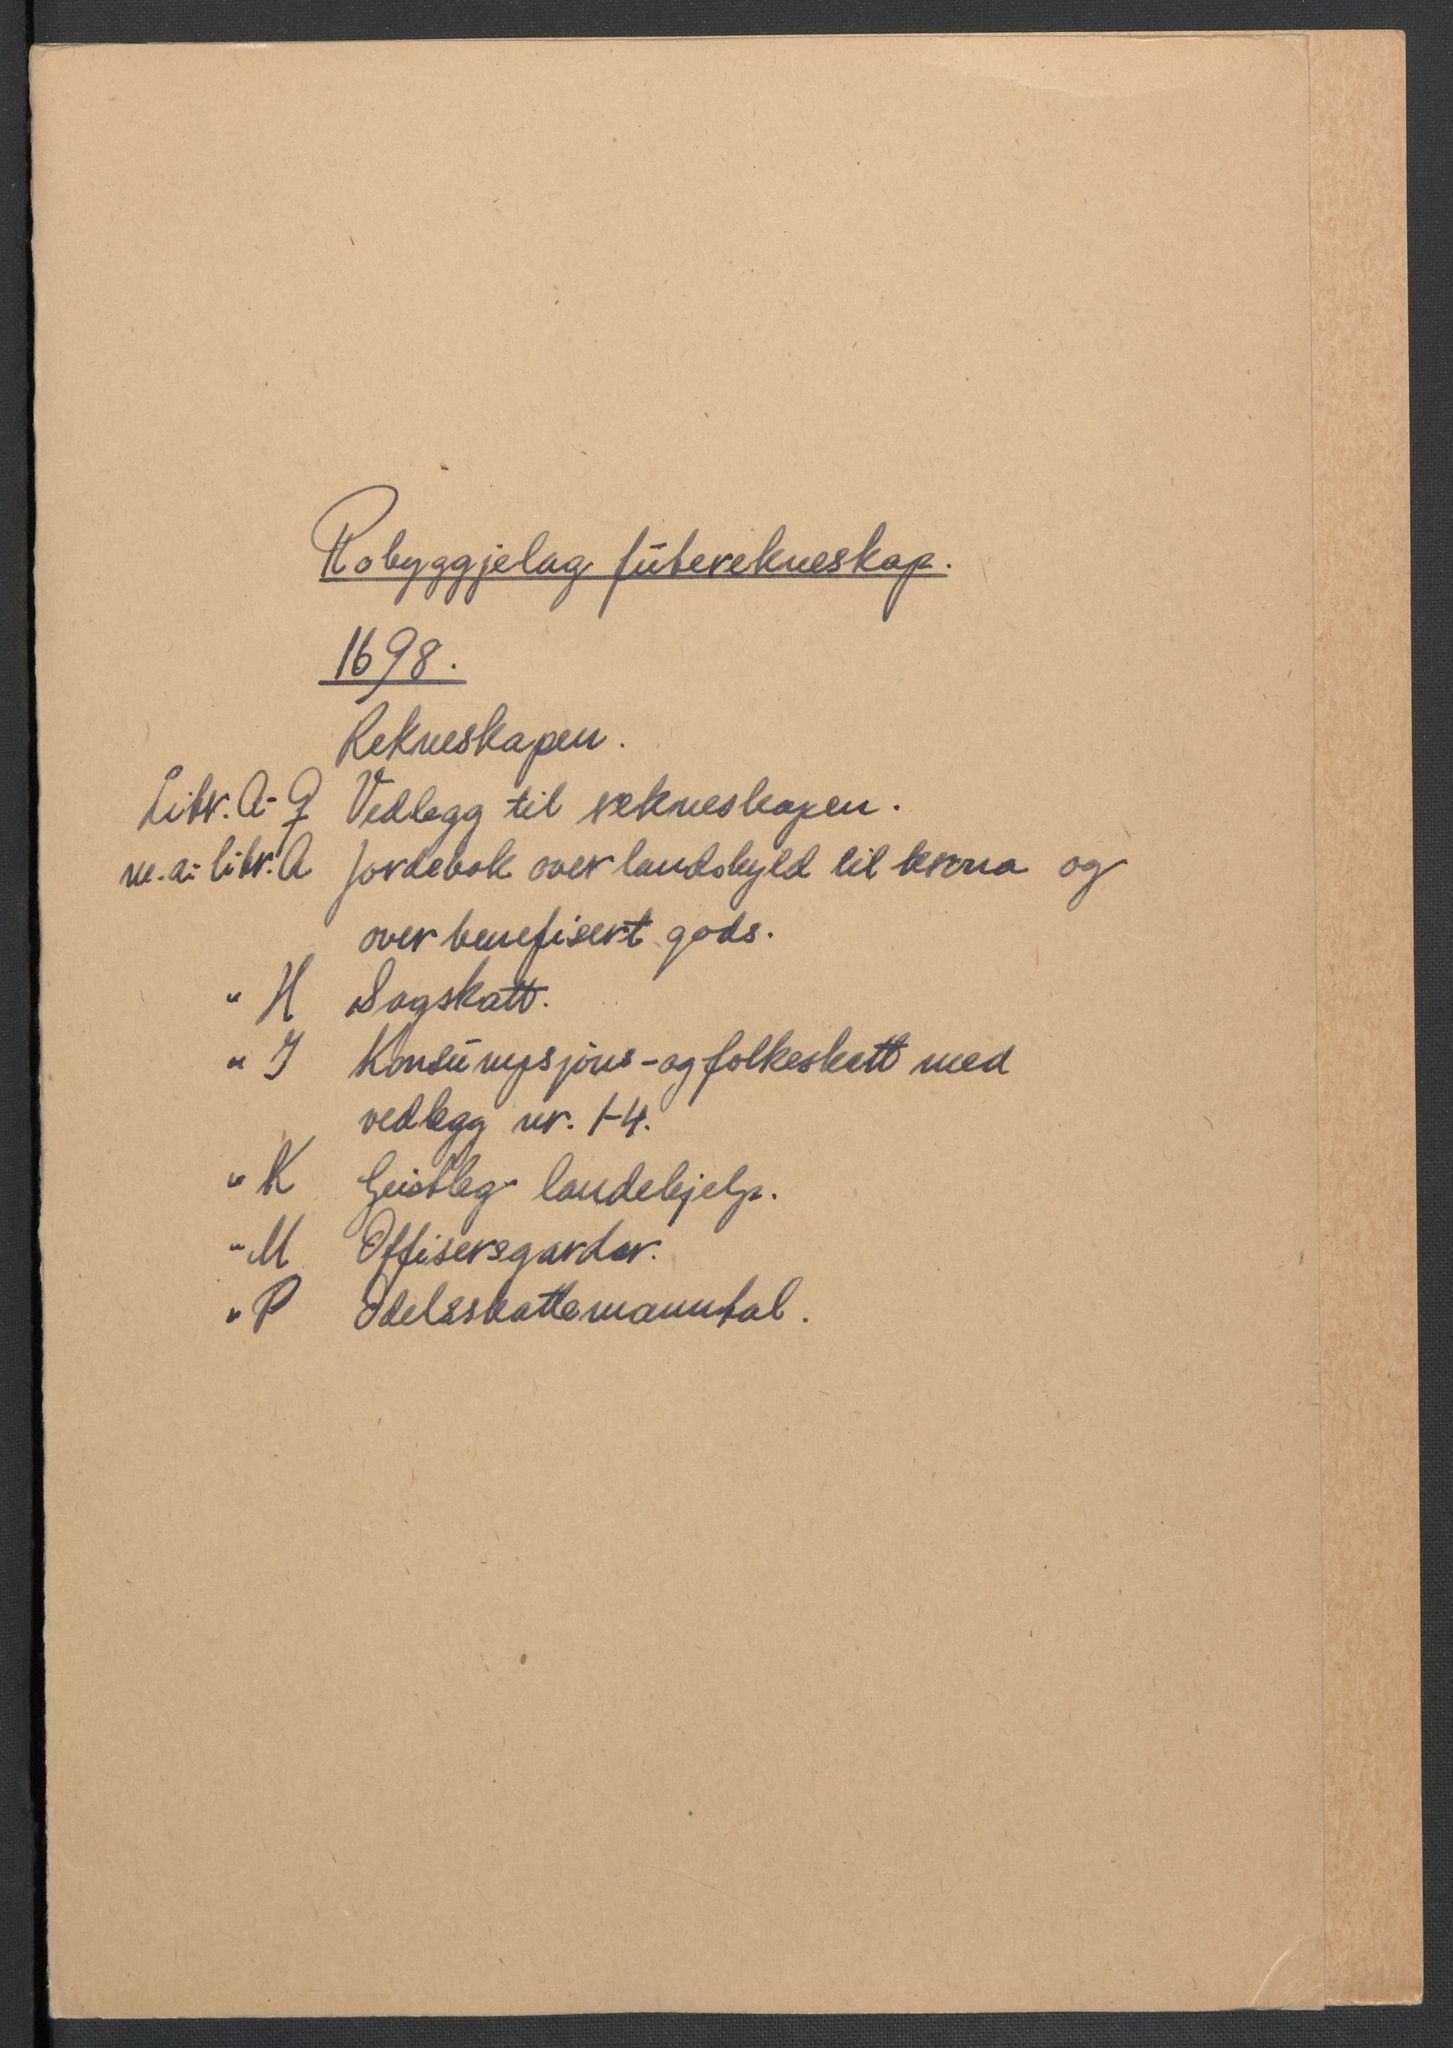 Robyggjelag futerekneskap.
1698.
Rekneskapen.
Litr. A-Q Vedlegg til rekneskapen.
m.a. litr. A Jordebok over landskyld til krona og
over benefisert gods.
" H Sagskatt.
" I Konsumpsjons- og folkeskatt med
vedlegg nr. 1-4.
" K Geistleg landehjelp.
" M Offisersgardar.
" P Odelsskattemanntal.